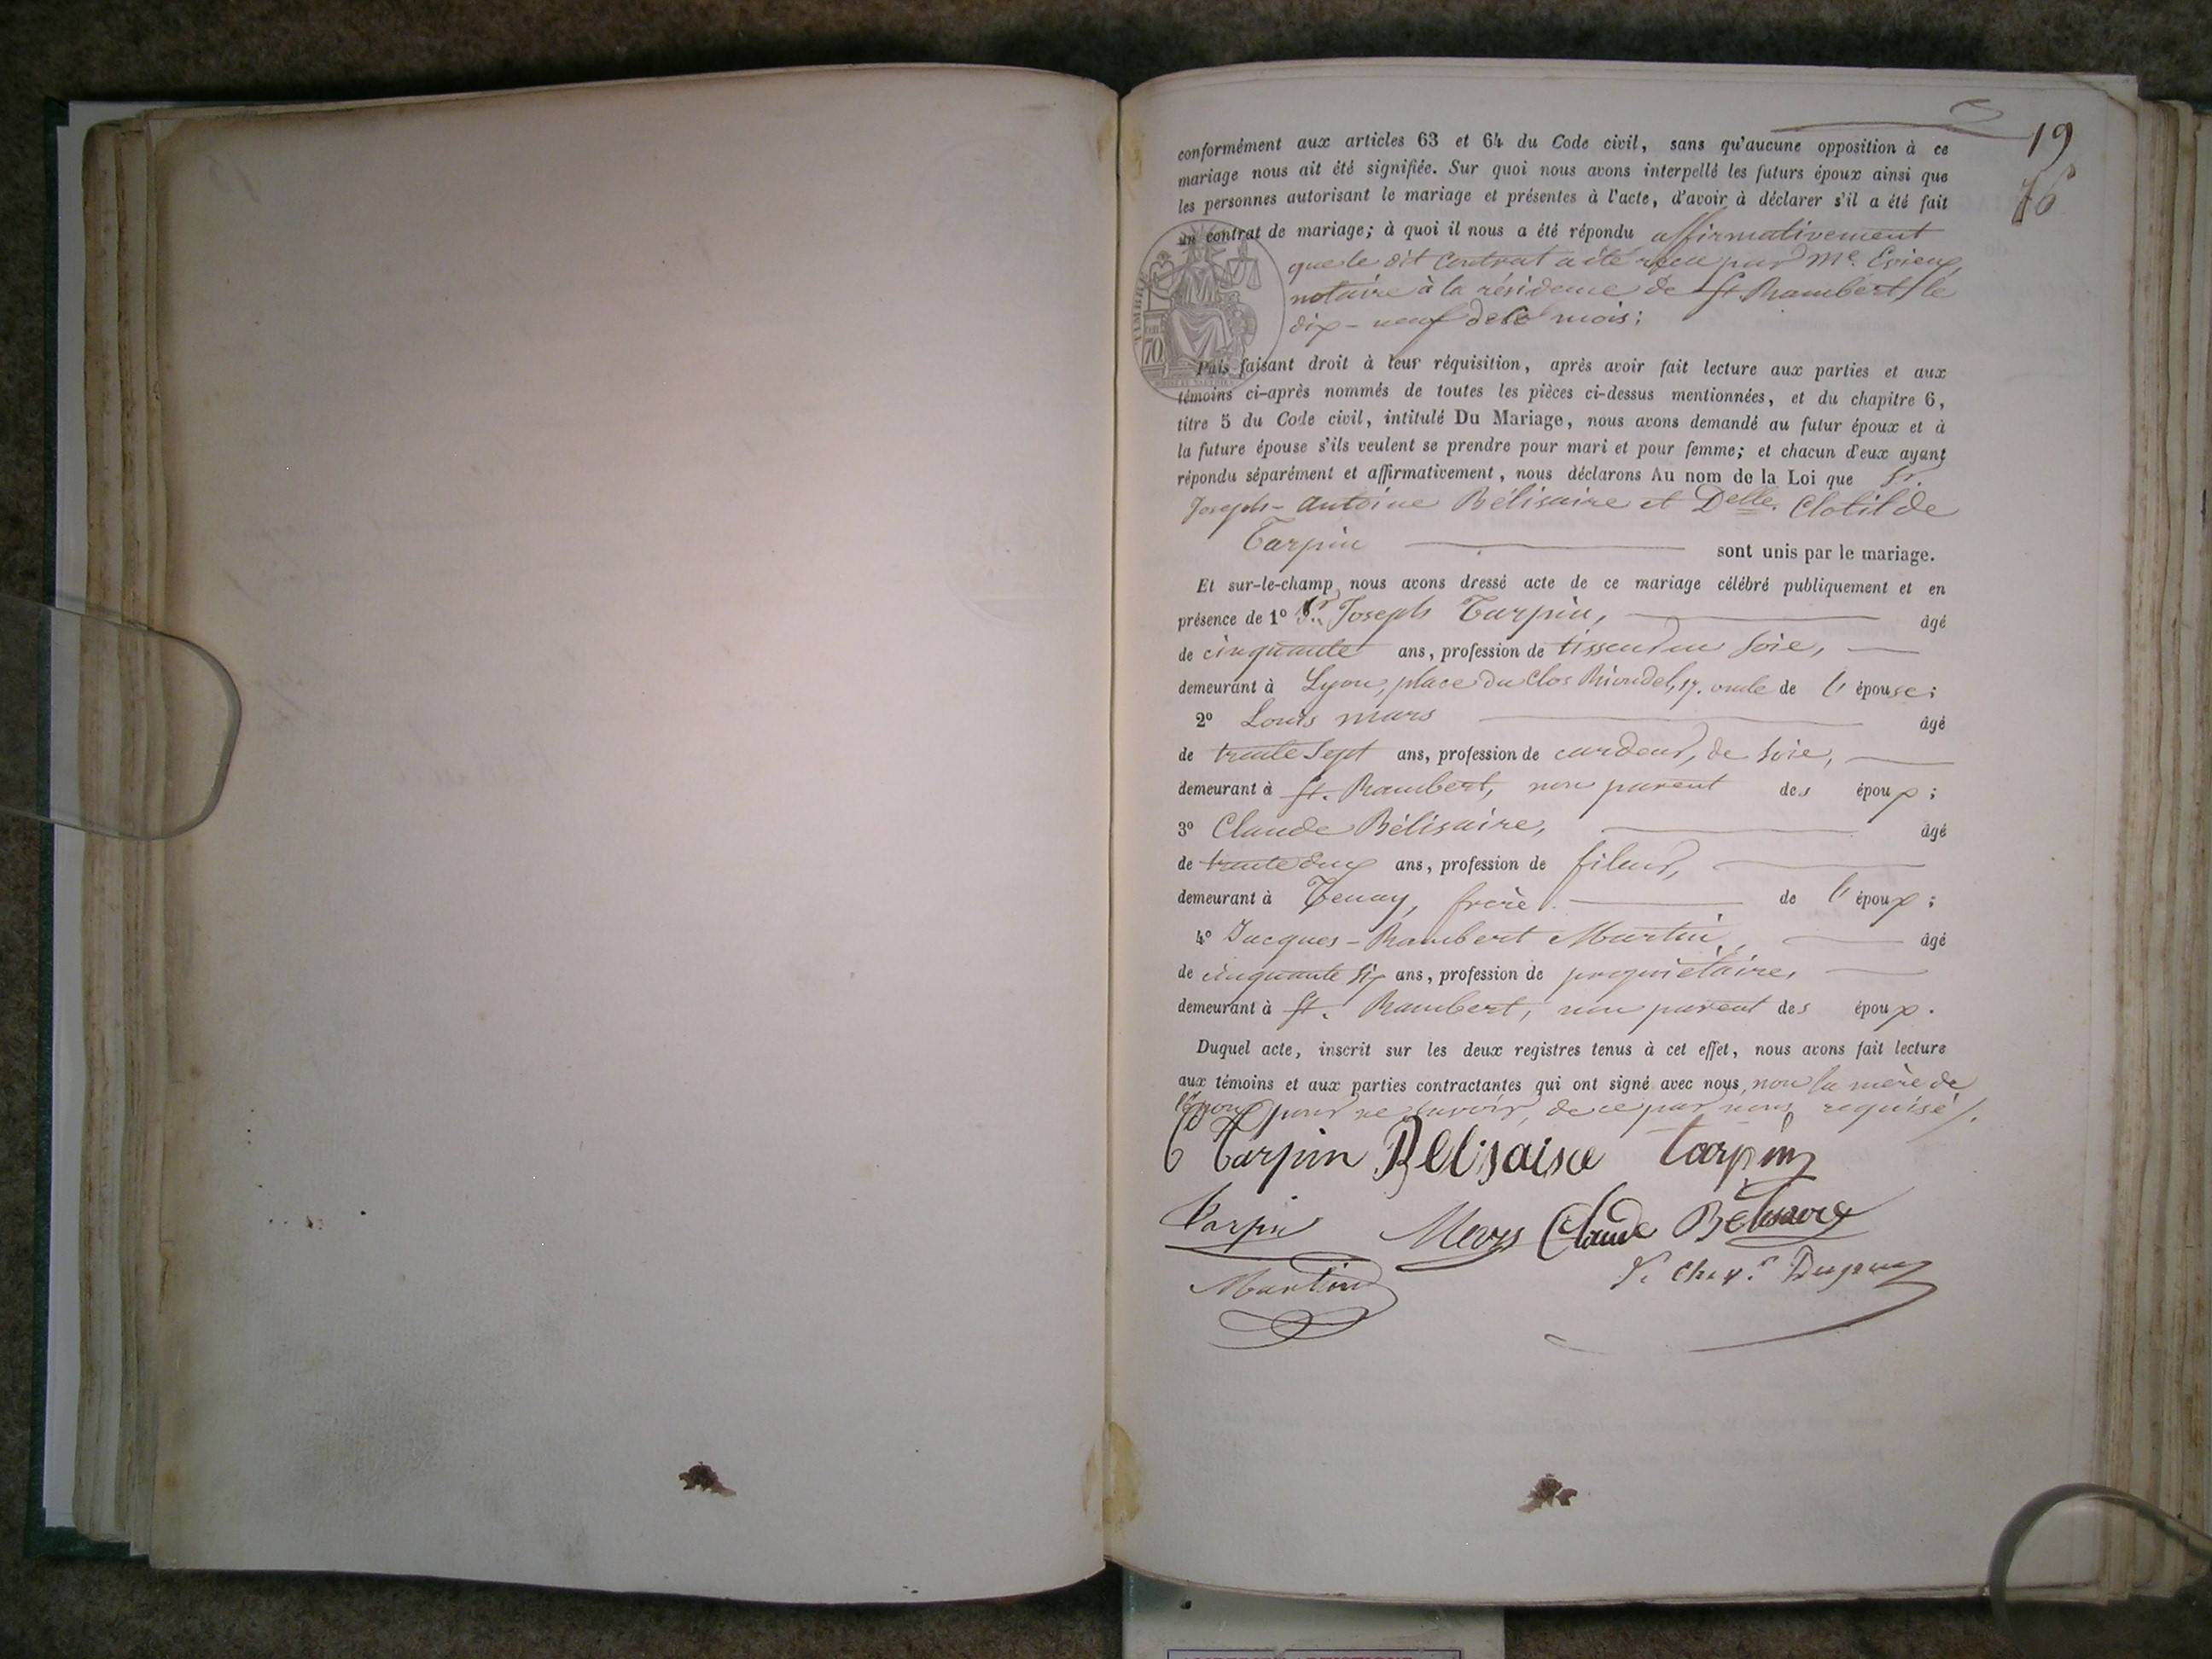 19
76
conformément aux articles 63 et 64 du Code civil, sans qu'aucune opposition à ce
mariage nous ait été signifiée. Sur quoi nous avons interpellé les futurs époux ainsi que
les personnes autorisant le mariage et présentes à l'acte, d'avoir à déclarer s'il a été fait
un contrat de mariage; à quoi il nous a été répondu affirmativement
que le dit Contrat a été reçu par Me.
notaire à la résidence de St. Rambert, le
dix-neuf de ce mois;
70
Puis faisant droit à leur réquisition, après avoir fait lecture aux parties et aux
témoins ci-après nommés de toutes les pièces ci-dessus mentionnées, et du chapitre 6,
titre 5 du Code civil, intitulé Du Mariage, nous avons demandé au futur époux et à
la future épouse s'ils veulent se prendre pour mari et pour femme; et chacun d'eux ayant
répondu séparément et affirmativement, nous déclarons Au nom de la Loi que Sr.
Joseph-Antoine Bélisaire et Delle. Clotilde
Tarpin sont unis par le mariage.
Et sur-le-champ nous avons dressé acte de ce mariage célébré publiquement et en
présence de 1° Sr. Joseph Tarpin, âgé
de cinquante ans, profession de tisseur en soie,
demeurant à Lyon, place du Clos Riondel, 17. oncle de l'épouse;
2° Louis Mars âgé
de trente sept ans, profession de cardeur, de soie,
demeurant à St. Rambert, non parent des époux;
3° Claude Bélisaire, âgé
de trente deux ans, profession de fileur,
demeurant à Tenay, frère de l'époux;
4° Jacques-Rambert Martin, âgé
de cinquante six ans, profession de propriétaire,
demeurant à St. Rambert, non parent des époux.
Duquel acte, inscrit sur les deux registres tenus à cet effet, nous avons fait lecture
aux témoins et aux parties contractantes qui ont signé avec nous, non la mère de
l'époux pour ne savoir, de ce par nous requise/.
C Tarpin Bélisaire tarpin
Tarpin Mars Claude Bélisaire
Martin